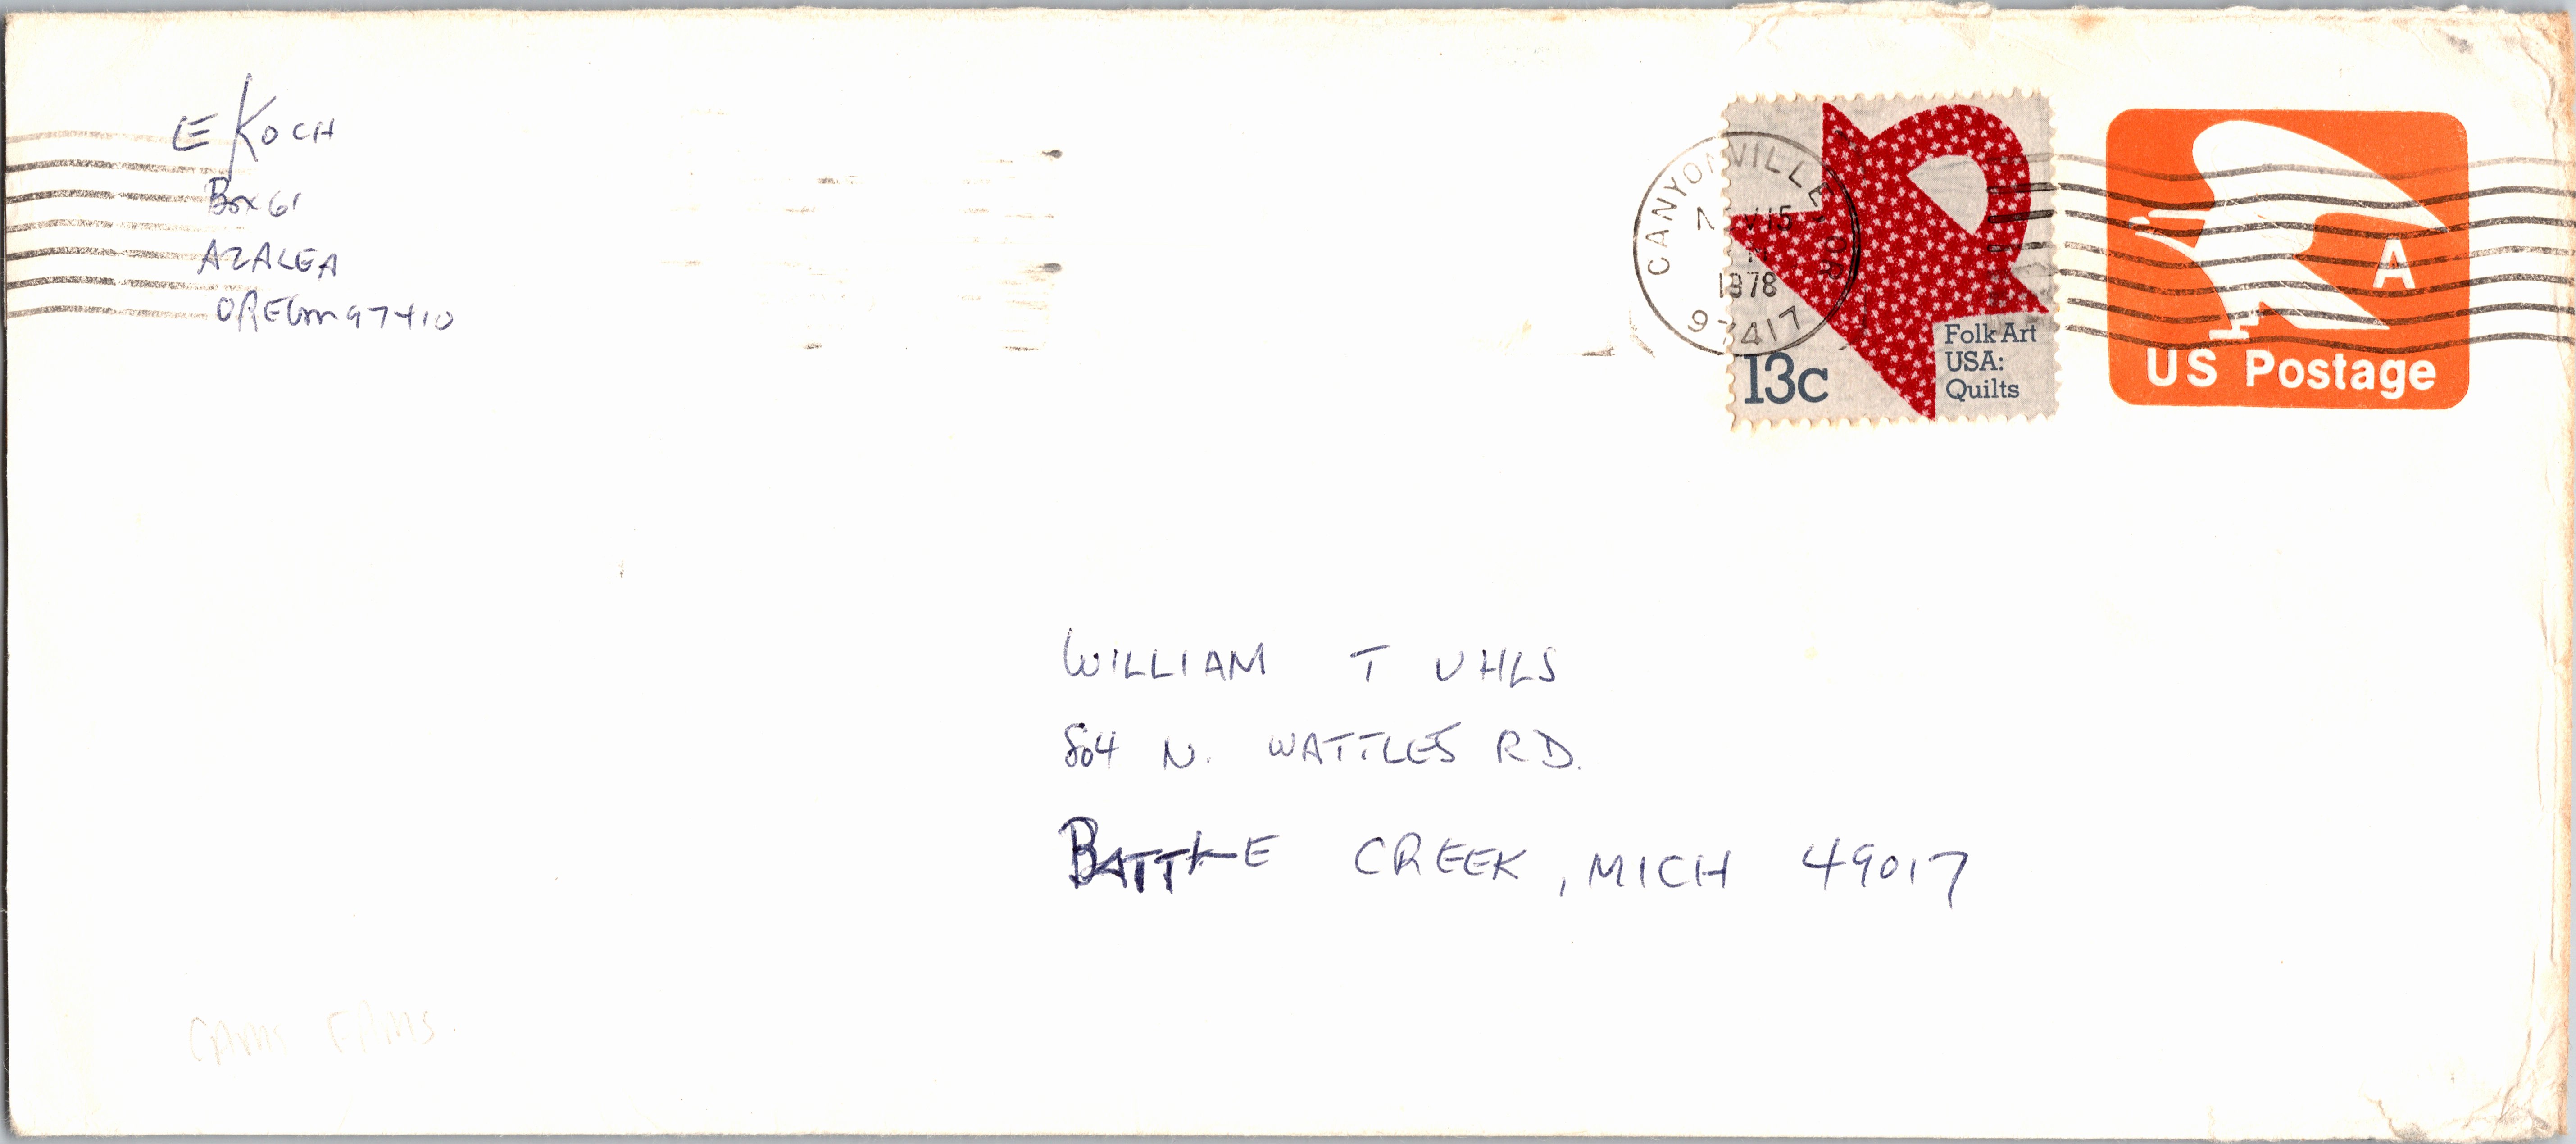 E KOCH
Box 61
AZALEA
OREGON 97410
CANYONVILLE, OR
NOV 15
1978
97417
13c
Folk Art
USA:
Quilts
A
US Postage
WILLIAM T UHLS
804 N. WATTLES RD.
BATTLE CREEK, MICH 49017